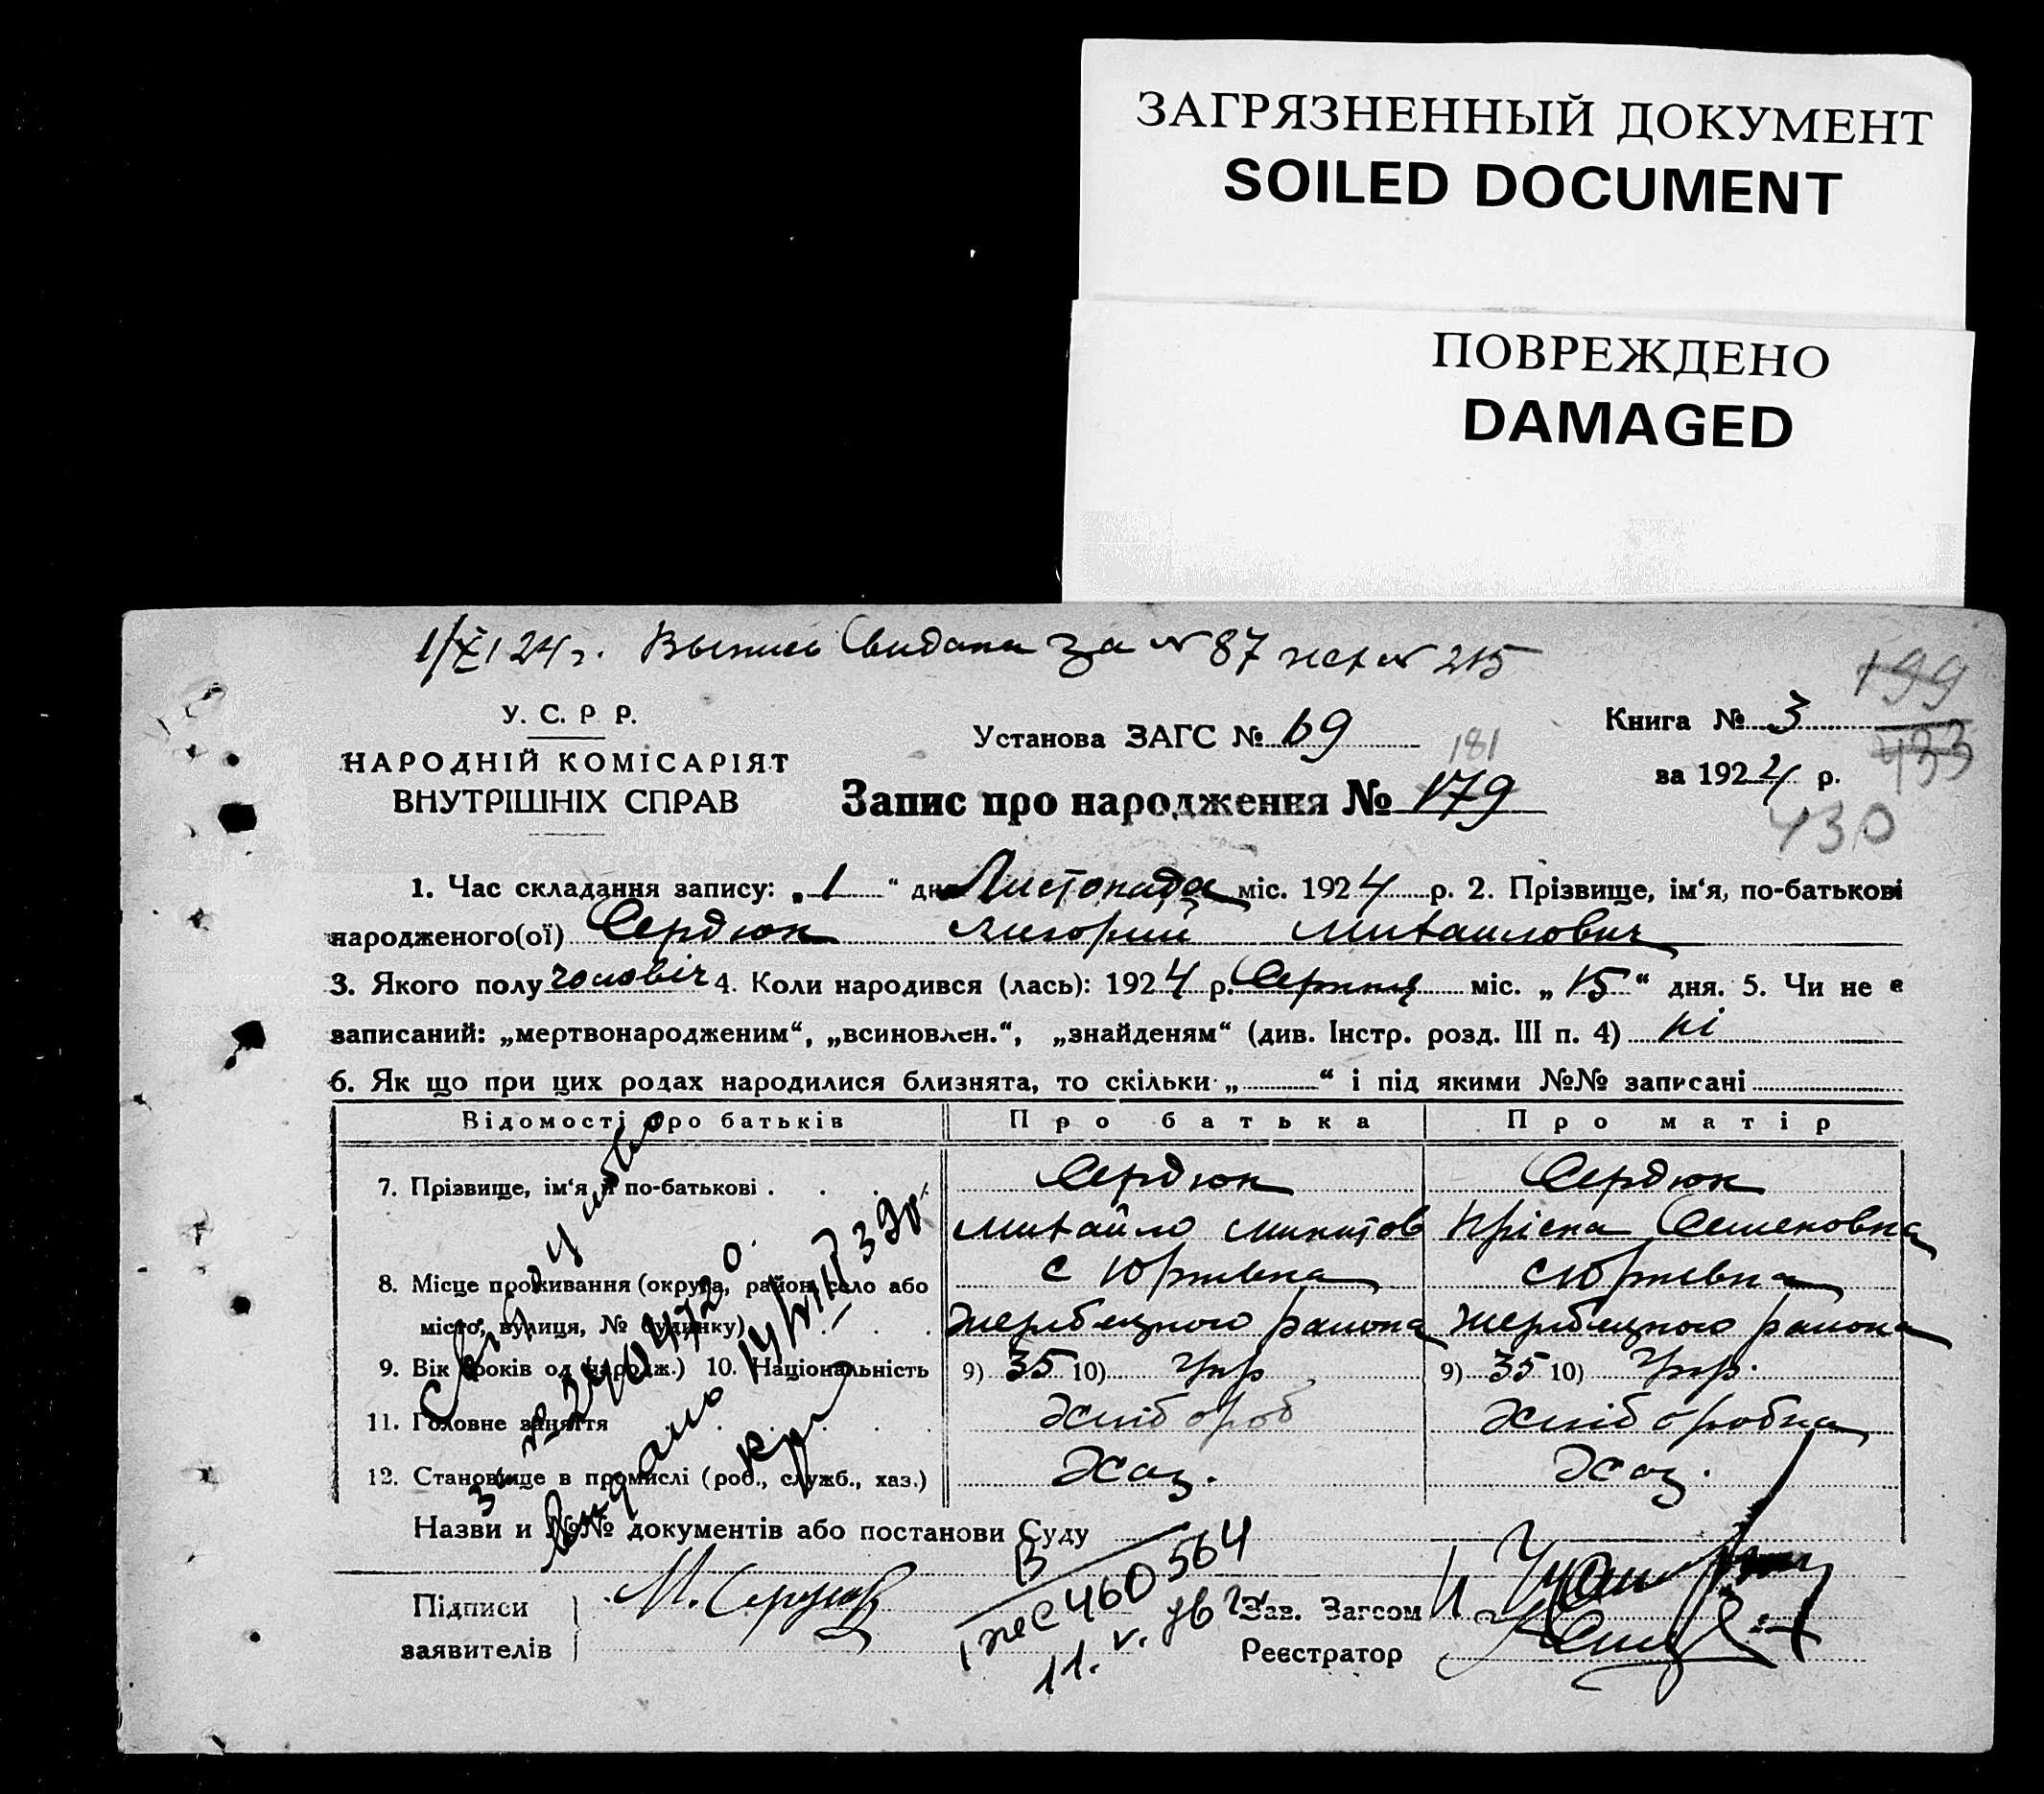 ЗАГРЯЗНЕННЫЙ ДОКУМЕНТ
SOILED DOCUMENT
ПОВРЕЖДЕНО
DAMAGED
1/XI 24 г. Выпись Свидана за № 87 № 215
199
У. С. Р Р.
НАРОДНІЙ КОМІСАРІЯТ
ВНУТРІШНІХ СПРАВ
Установа ЗАГС № 69
Книга № 3
433
за 1924 р.
181
Запис про народження № 179
430
1. Час складання запису: „1“ дня Листопада міс. 1924 р. 2. Прізвище, ім‘я, по-батькові
народженого(ої) Сердюк Григорий Михаилович
3. Якого полу чоловіч 4. Коли народився (лась): 1924 р. Серпня міс. „15“ дня. 5. Чи не є
записаний: „мертвонародженим“, „всиновлен.“, „знайденям“ (див. Інстр. розд. III п. 4) ні
6. Як що при цих родах народилися близнята, то скільки „ “ і під якими №№ записані
Відомості про батьків Про батька Про матір
7. Прізвище, ім‘я й по-батькові . Сердюк Сердюк
Михайло Микитов Пріська Семеновна
8. Місце проживання (округа, район, село або с Юрківка с Юрківка
місто, вулиця, № будинку) Жеребецького района Жеребецького района
9. Вік (років од народж.) 10. Національність 9) 35 10) Укр 9) 35 10) Укр.
11. Головне заняття Хлібороб Хліборобка
12. Становище в промислі (роб., служб., хаз.) Хаз. Хаз.
Назви и №№ документів або постанови Суду
Підписи М. Сердюк Зав. Загсом
заявителів Реєстратор
460 564
11. V.